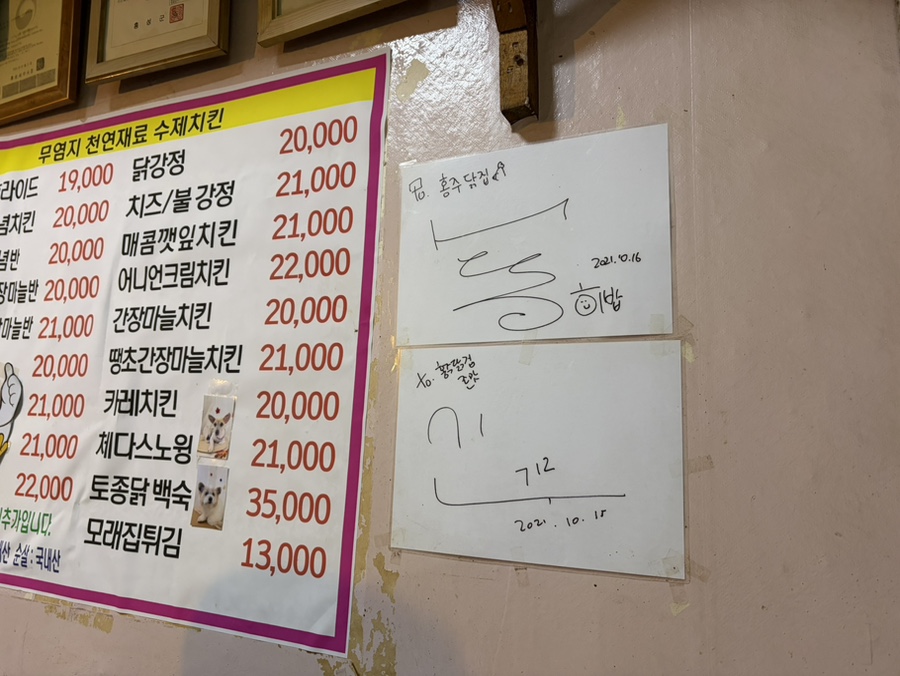 홍성군
무염지 천연재료 수제치킨
라이드 19,000 닭강정 20,000
념치킨 20,000 치즈/불 강정 21,000
념반 20,000 매콤깻잎치킨 21,000
장마늘반 20,000 어니언크림치킨 22,000
마늘반 21,000 간장마늘치킨 20,000
20,000 땡초간장마늘치킨 21,000
21,000 카레치킨 20,000
21,000 체다스노윙 21,000
22,000 토종닭 백숙 35,000
추가입니다.
모래집튀김 13,000
산 순살 : 국내산
To. 홍주닭집
2021.10.16
히밥
to. 홍주닭집
존맛
기
712
2021.10.15